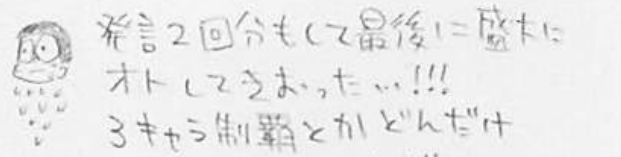 発言2回分もして最後に盛大に
オトしてきおった…!!!
3キャラ制覇とかどんだけ